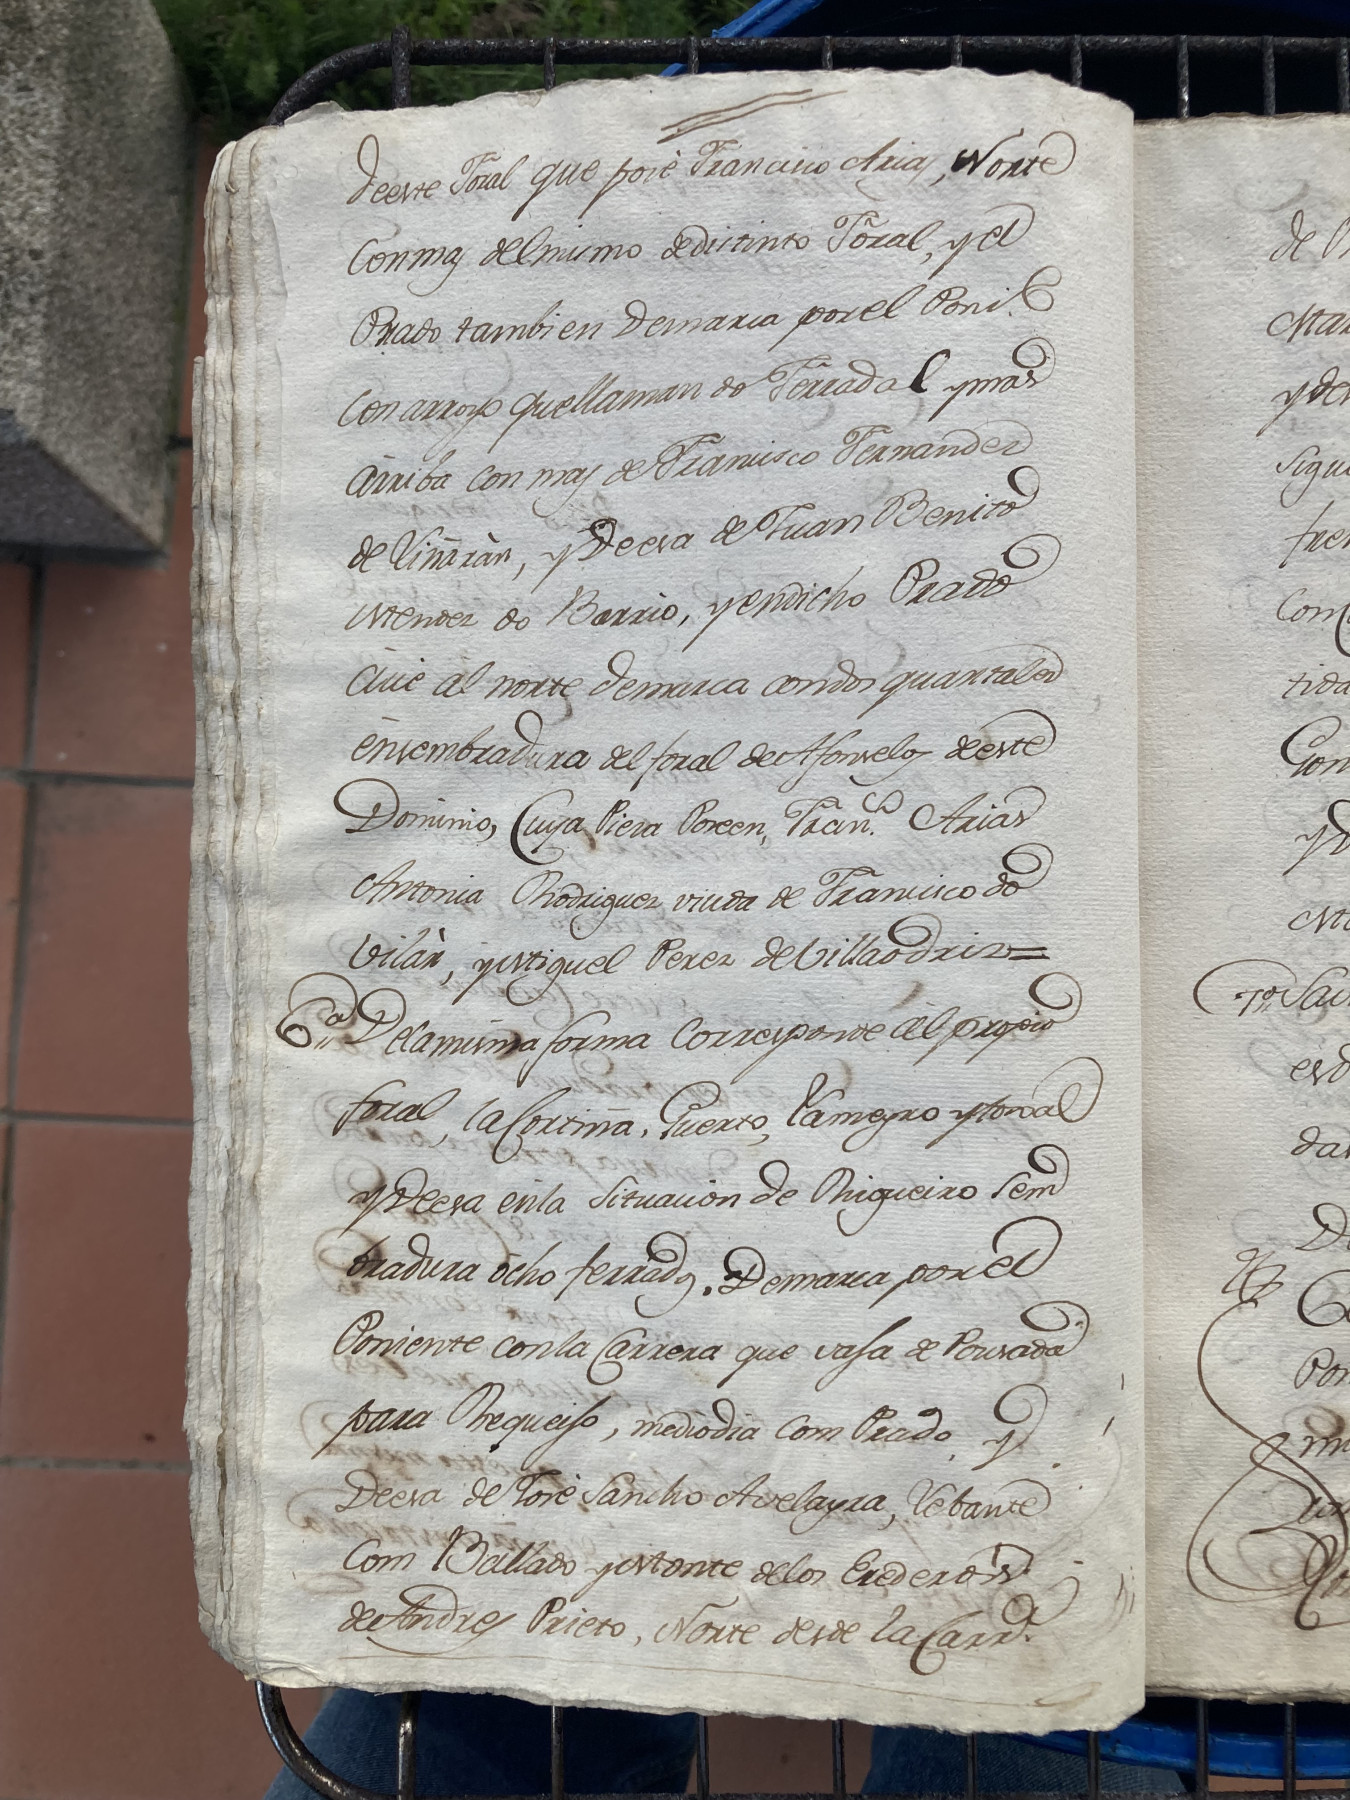 deeste Foral que poseè Francisco Arias, Norte
Con mas del mismo de distinto Foral, y el
Prado tambien Demarca por el Poni.te
Con arroyo que llaman do Ferradal y mas
arriba con mas de Francisco Fernandez
de Viñaràn, y Deesa de Juan Benito
Mendez do Barrio, y endicho Prado
àcie al norte demarca con dos quartales
ensembradura del foral de Afonselos deeste
Dominio, Cuya Pieza Poseen, Fran.co Arias
Antonia Rodriguez viuda de Francisco do
Vilàr, y Miguel Perez de Villaodriz =
6.a De la misma forma Corresponde àl propio
foral, la Cortiña, Huerto, Lameyro y toxal
y Deesa en la Situacion de Rigueiro Sem
bradura ôcho ferrados. Demarca por el
Poniente con la Carrera que vaja de Pousada
para Requeijo, mediodia com Prado, y
Deesa de Josè Sancho Avelayra, Lebante
Com Ballado y Monte delos Erederos
de Andres Prieto, Norte desde la Carr.a
de
Mar
y de
Sigue
fren
Com
tida
Gon
y D
7.a
esd
das
De
Pon